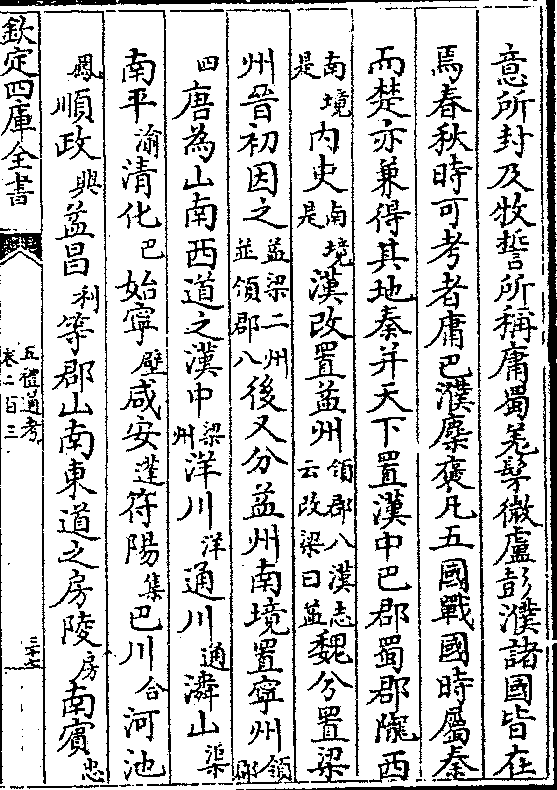 意所封及牧誓所稱庸蜀羌髳微盧彭濮諸國皆在
焉春秋時可考者庸巴濮麇褒凡五國戰國時屬秦
而楚亦兼得其地秦并天下置漢中巴郡蜀郡隴西
南境是內史南境是漢改置益州領郡八漢志云改梁曰益魏分置梁
州晉初因之益梁二州並領郡八後又分益州南境置寧州領郡
四唐為山南西道之漢中梁州洋川洋通川通潾山渠
南平渝清化巴始寧壁咸安蓬符陽集巴川合河池
鳳順政興益昌利等郡山南東道之房陵房南賓忠
欽定四庫全書
五禮通考
卷二百三
三十七